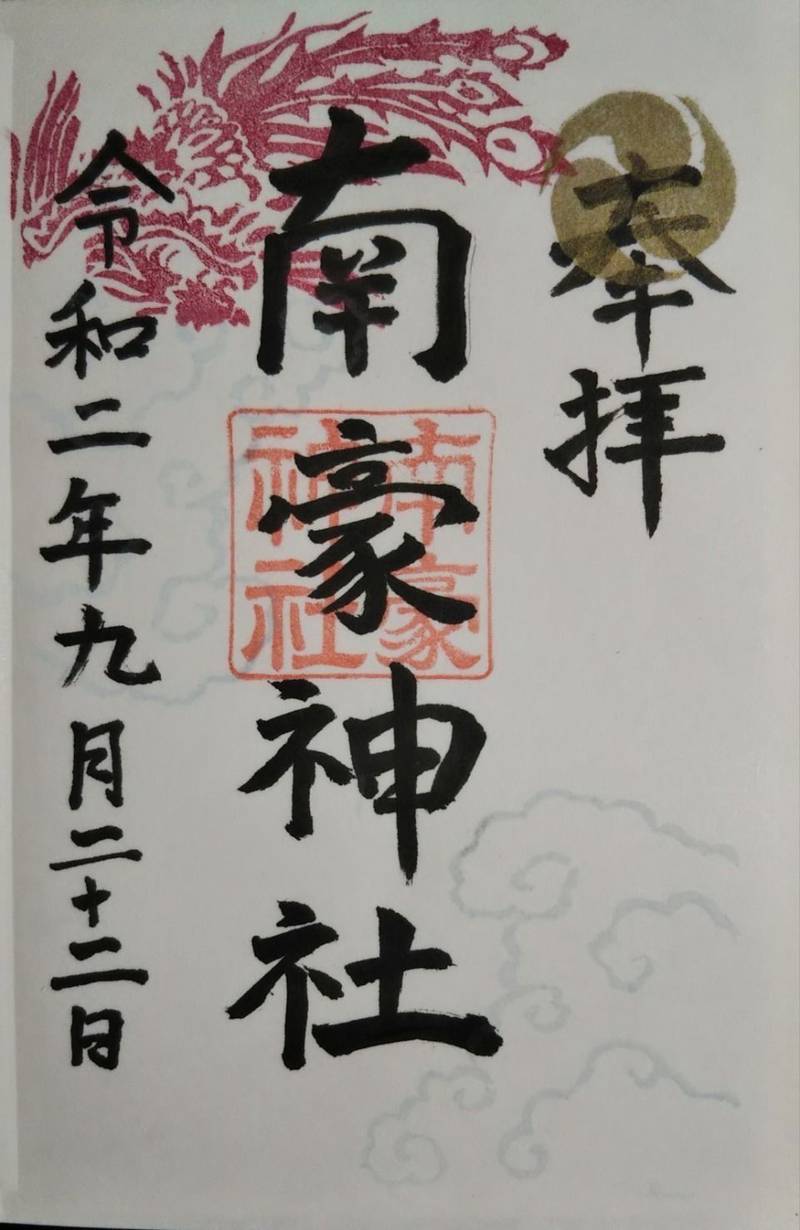 奉拝
南豪神社
南豪神社
令和二年九月二十二日